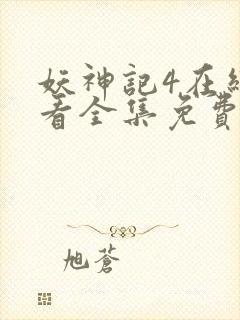 妖神記4在線
看全集免費
旭蒼